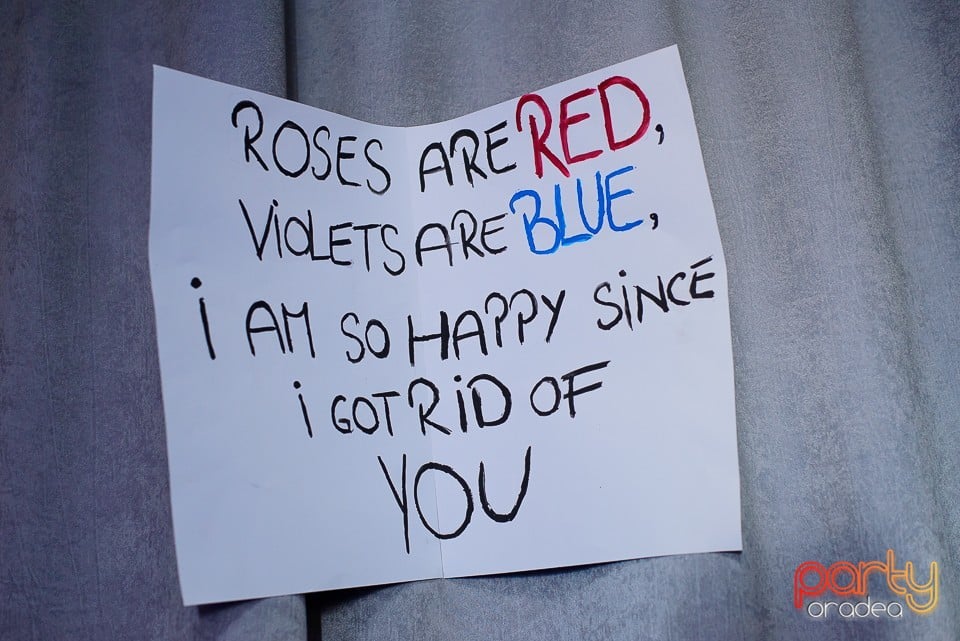 ROSES ARE RED,
ViOLETS ARE BLUE,
i AM SO HAPPY SiNCE
i GOT RiD OF
YOU
party
oradea